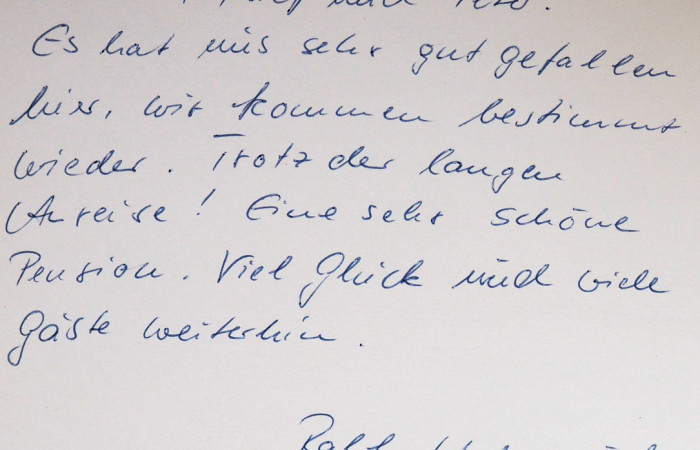 Es hat uns sehr gut gefallen
hier, wir kommen bestimmt
wieder. Trotz der langen
Anreise! Eine sehr schöne
Pension. Viel Glück und viele
Gäste weiterhin.